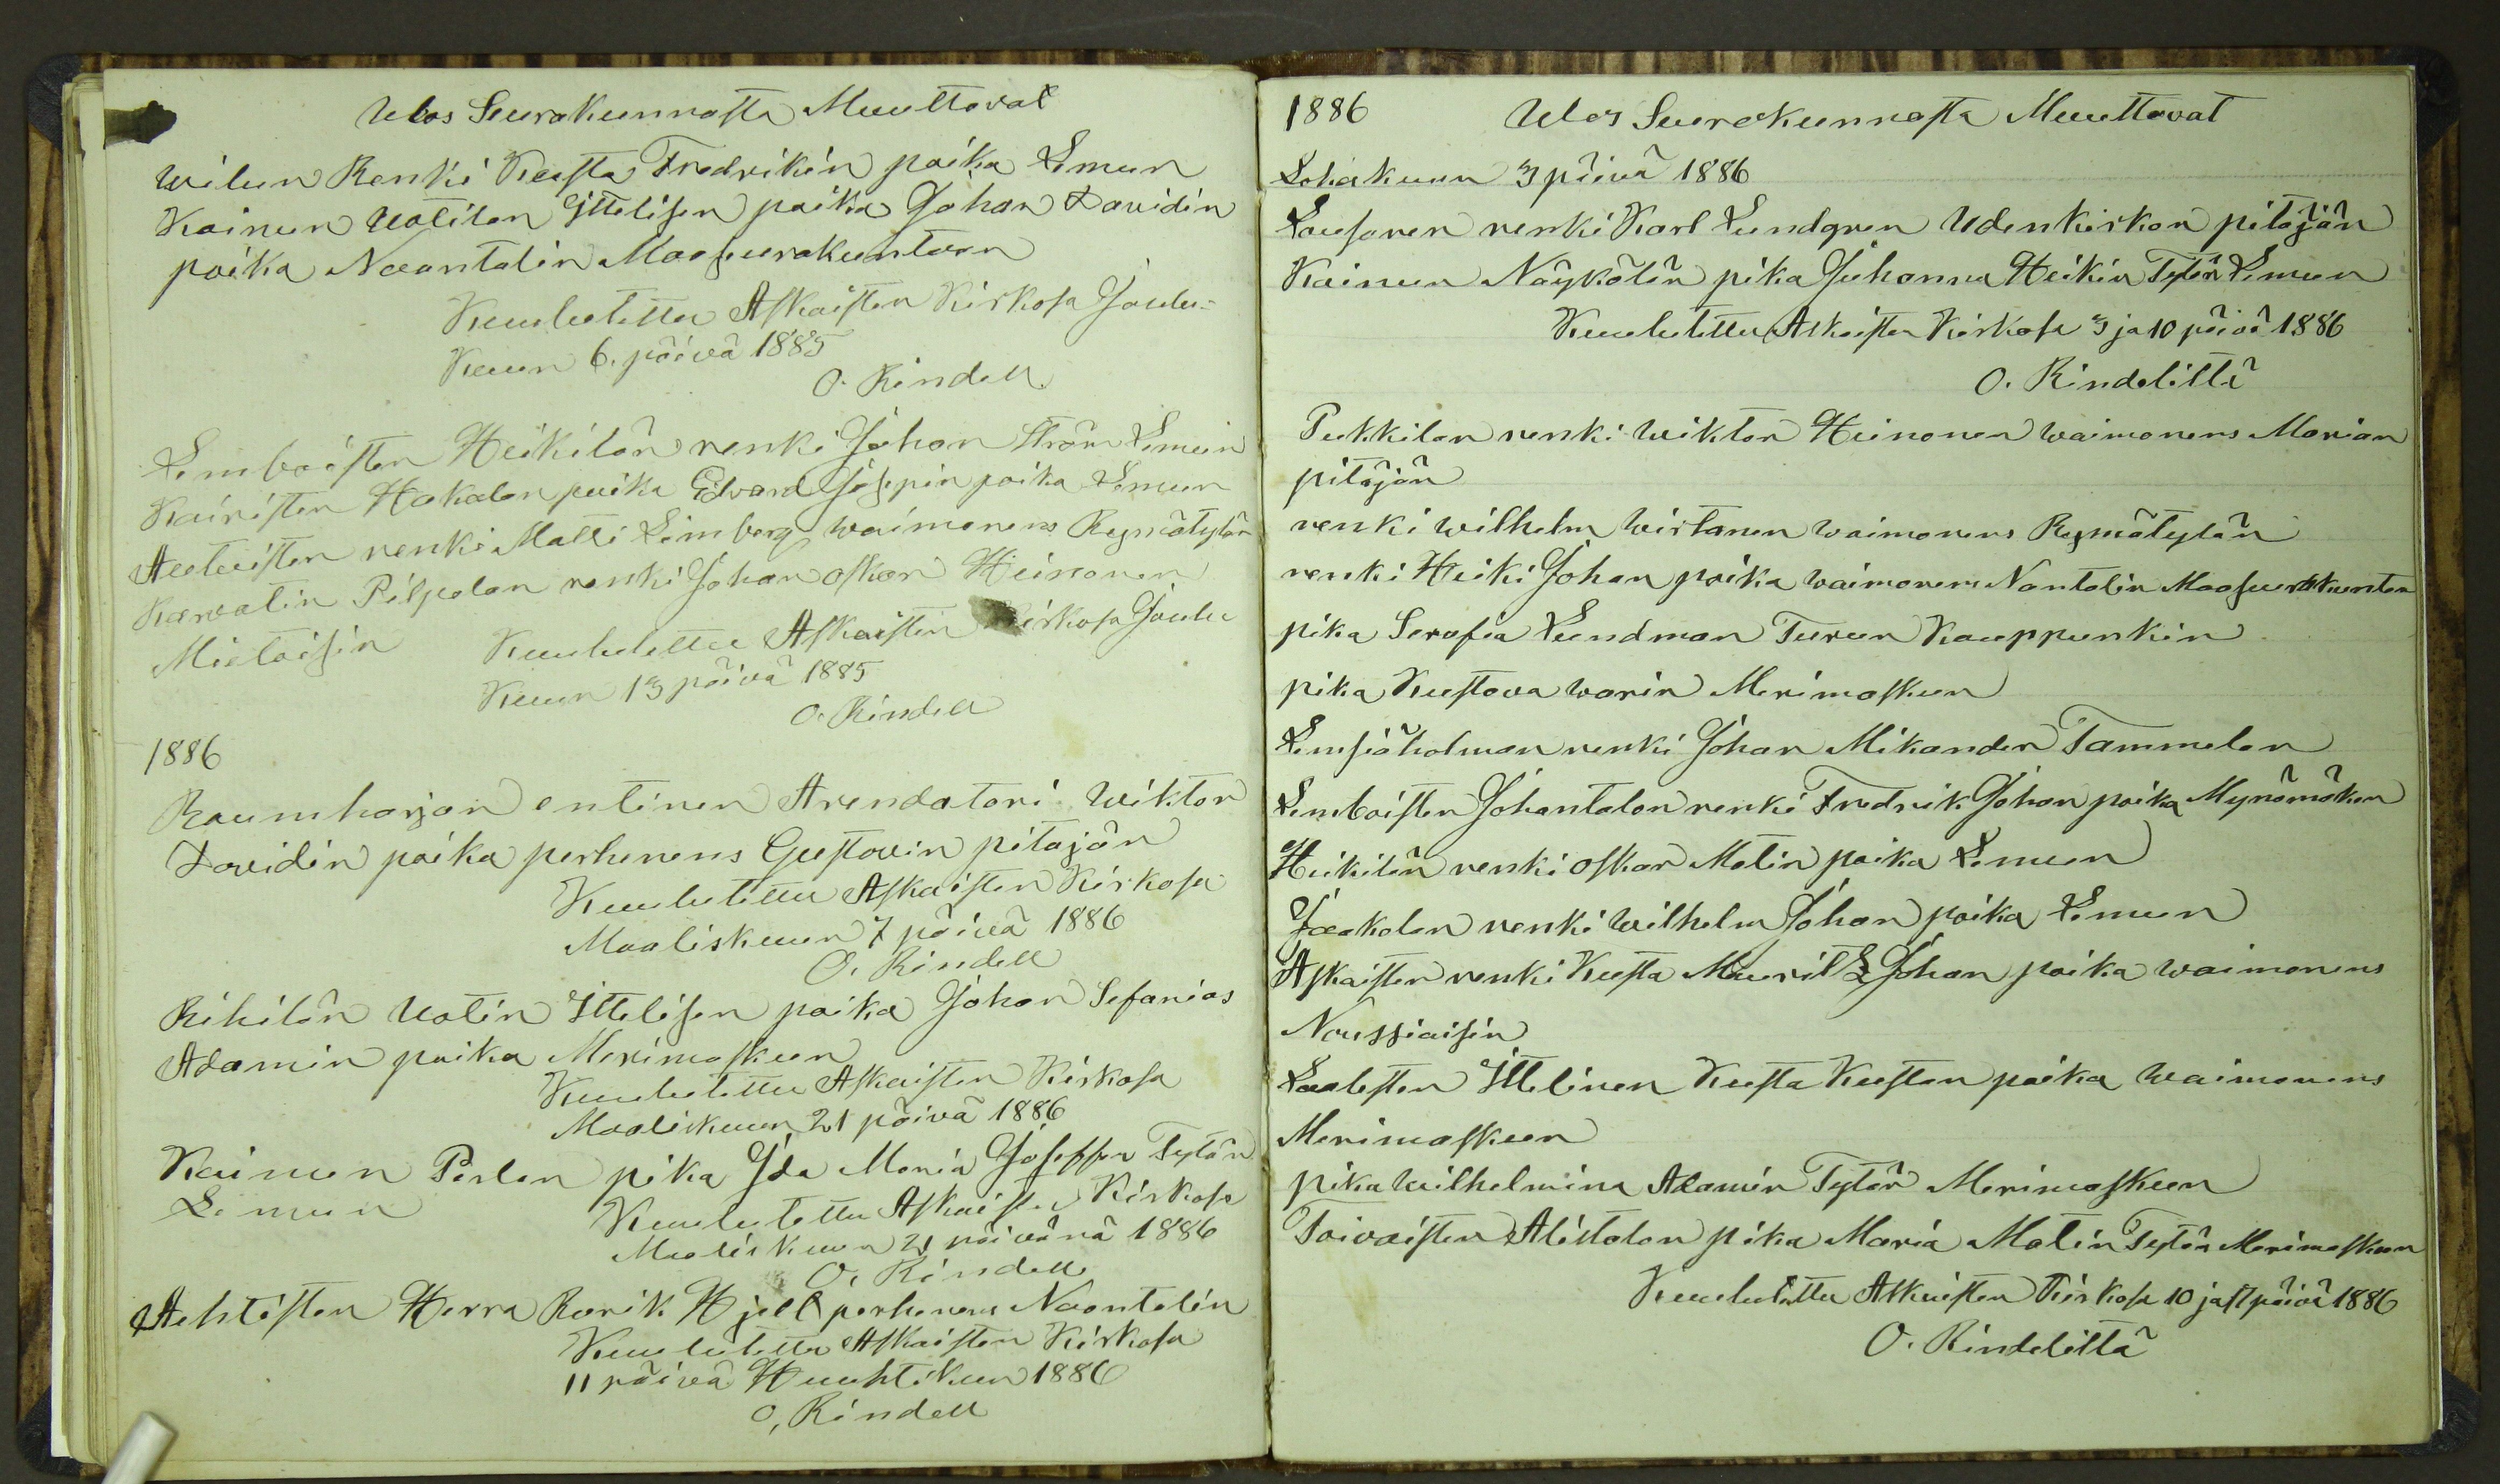 Ulos Seurakunnasta Muuttavat
Wilun Renki Kusta Fredrikin poika Lemun
Kainun Uotilan Ittelisen poika Johan Davidin
poika Naantalin Maaseurakuntaan
Kuulutettu Askaisten Kirkosa Joulu=
Kuun 6. päivä 1885
O. Rindell.
Lemboisten Heikilän renki Johan Ström Lemuin
Kairisten Hakalan poika Edvard Josepin poika Lemun
Auteisten renki Matti Limberg waimonens Reymätylän
Karvatin Pilpalan renki Johan oskar Heinonen
Mietoisin
Kuulutettu Askaisten Kirkosa Joulu
Kuun 13 päivä 1885
O. Rindell
1886
Raumharjan entinen Arendatori Wiktor
Davidin poika perhenens Gustavin pitäjän
Kuulutettu Askaisten Kirkosa
Maaliskuun 7 päivä 1886
O. Rindell
Rihilän Uotin Ittelisen poika Johan Sefanias
Adamin poika Merimaskun
Kuulutettu Askaisten Kirkosa
Maaliskuun 21 päivä 1886
Kainun Perlan pika Ida Maria Joseffin Tytär
Lemun
Kuulutettu Askaisten Kirkosa
Maaliskuun 21 päivänä 1886
O, Rindell
Ahtisten Herra Rurik Hjelt perhenens Naantalin
Kuulutettu Askaisten Kirkosa
11 päivä Huuhtikuu 1886
O, Rindell
1886 Ulos Seurakunnasta Muuttavat
Lokakuun 3 päivä 1886
Lausaren renki Karl Lundgren Udenkirkon pitäjän
Kainun Näykälän pika Juhanna Heikin Tytär Lemun
Kuulutettu Askaisten Kirkosa 3 ja 10 päivä 1886
O. Rindelittä
Pukkilan renki Wiktor Heinonen waimonens Marian
pitäjän
renki Wilhelm Wirtanen waimonens Reymätylän
renki Heiki Johan poika waimonens Nantalin Maaseurakuntan
pika Serafia Lundman Turun Kauppunkin
pika Kustava Warin Merimaskun
Lemsiäholman renki Johan Mikander Tammelan
Lemboisten Johantalon renki Fredrik Johan poika Mynämäken
Heikilän renki oskar Matin poika Lemun
Jaakolan renki Wilhelm Johan poika Lemun
Askaisten renki Kusta Mauritz Johan poika waimonens
Noussiaisin
Laalisten Ittelinen Kusta Kustan poika Waimonens
Merimaskun
pika Wilhelmina Adamin Tytär Merimaskun
Toivaisten Alistalon pika Maria Matin Tytär Merimaskun
Kuulutettu Askaisten Kirkosa 10 ja 17 päivä 1886
O. Rindelittä